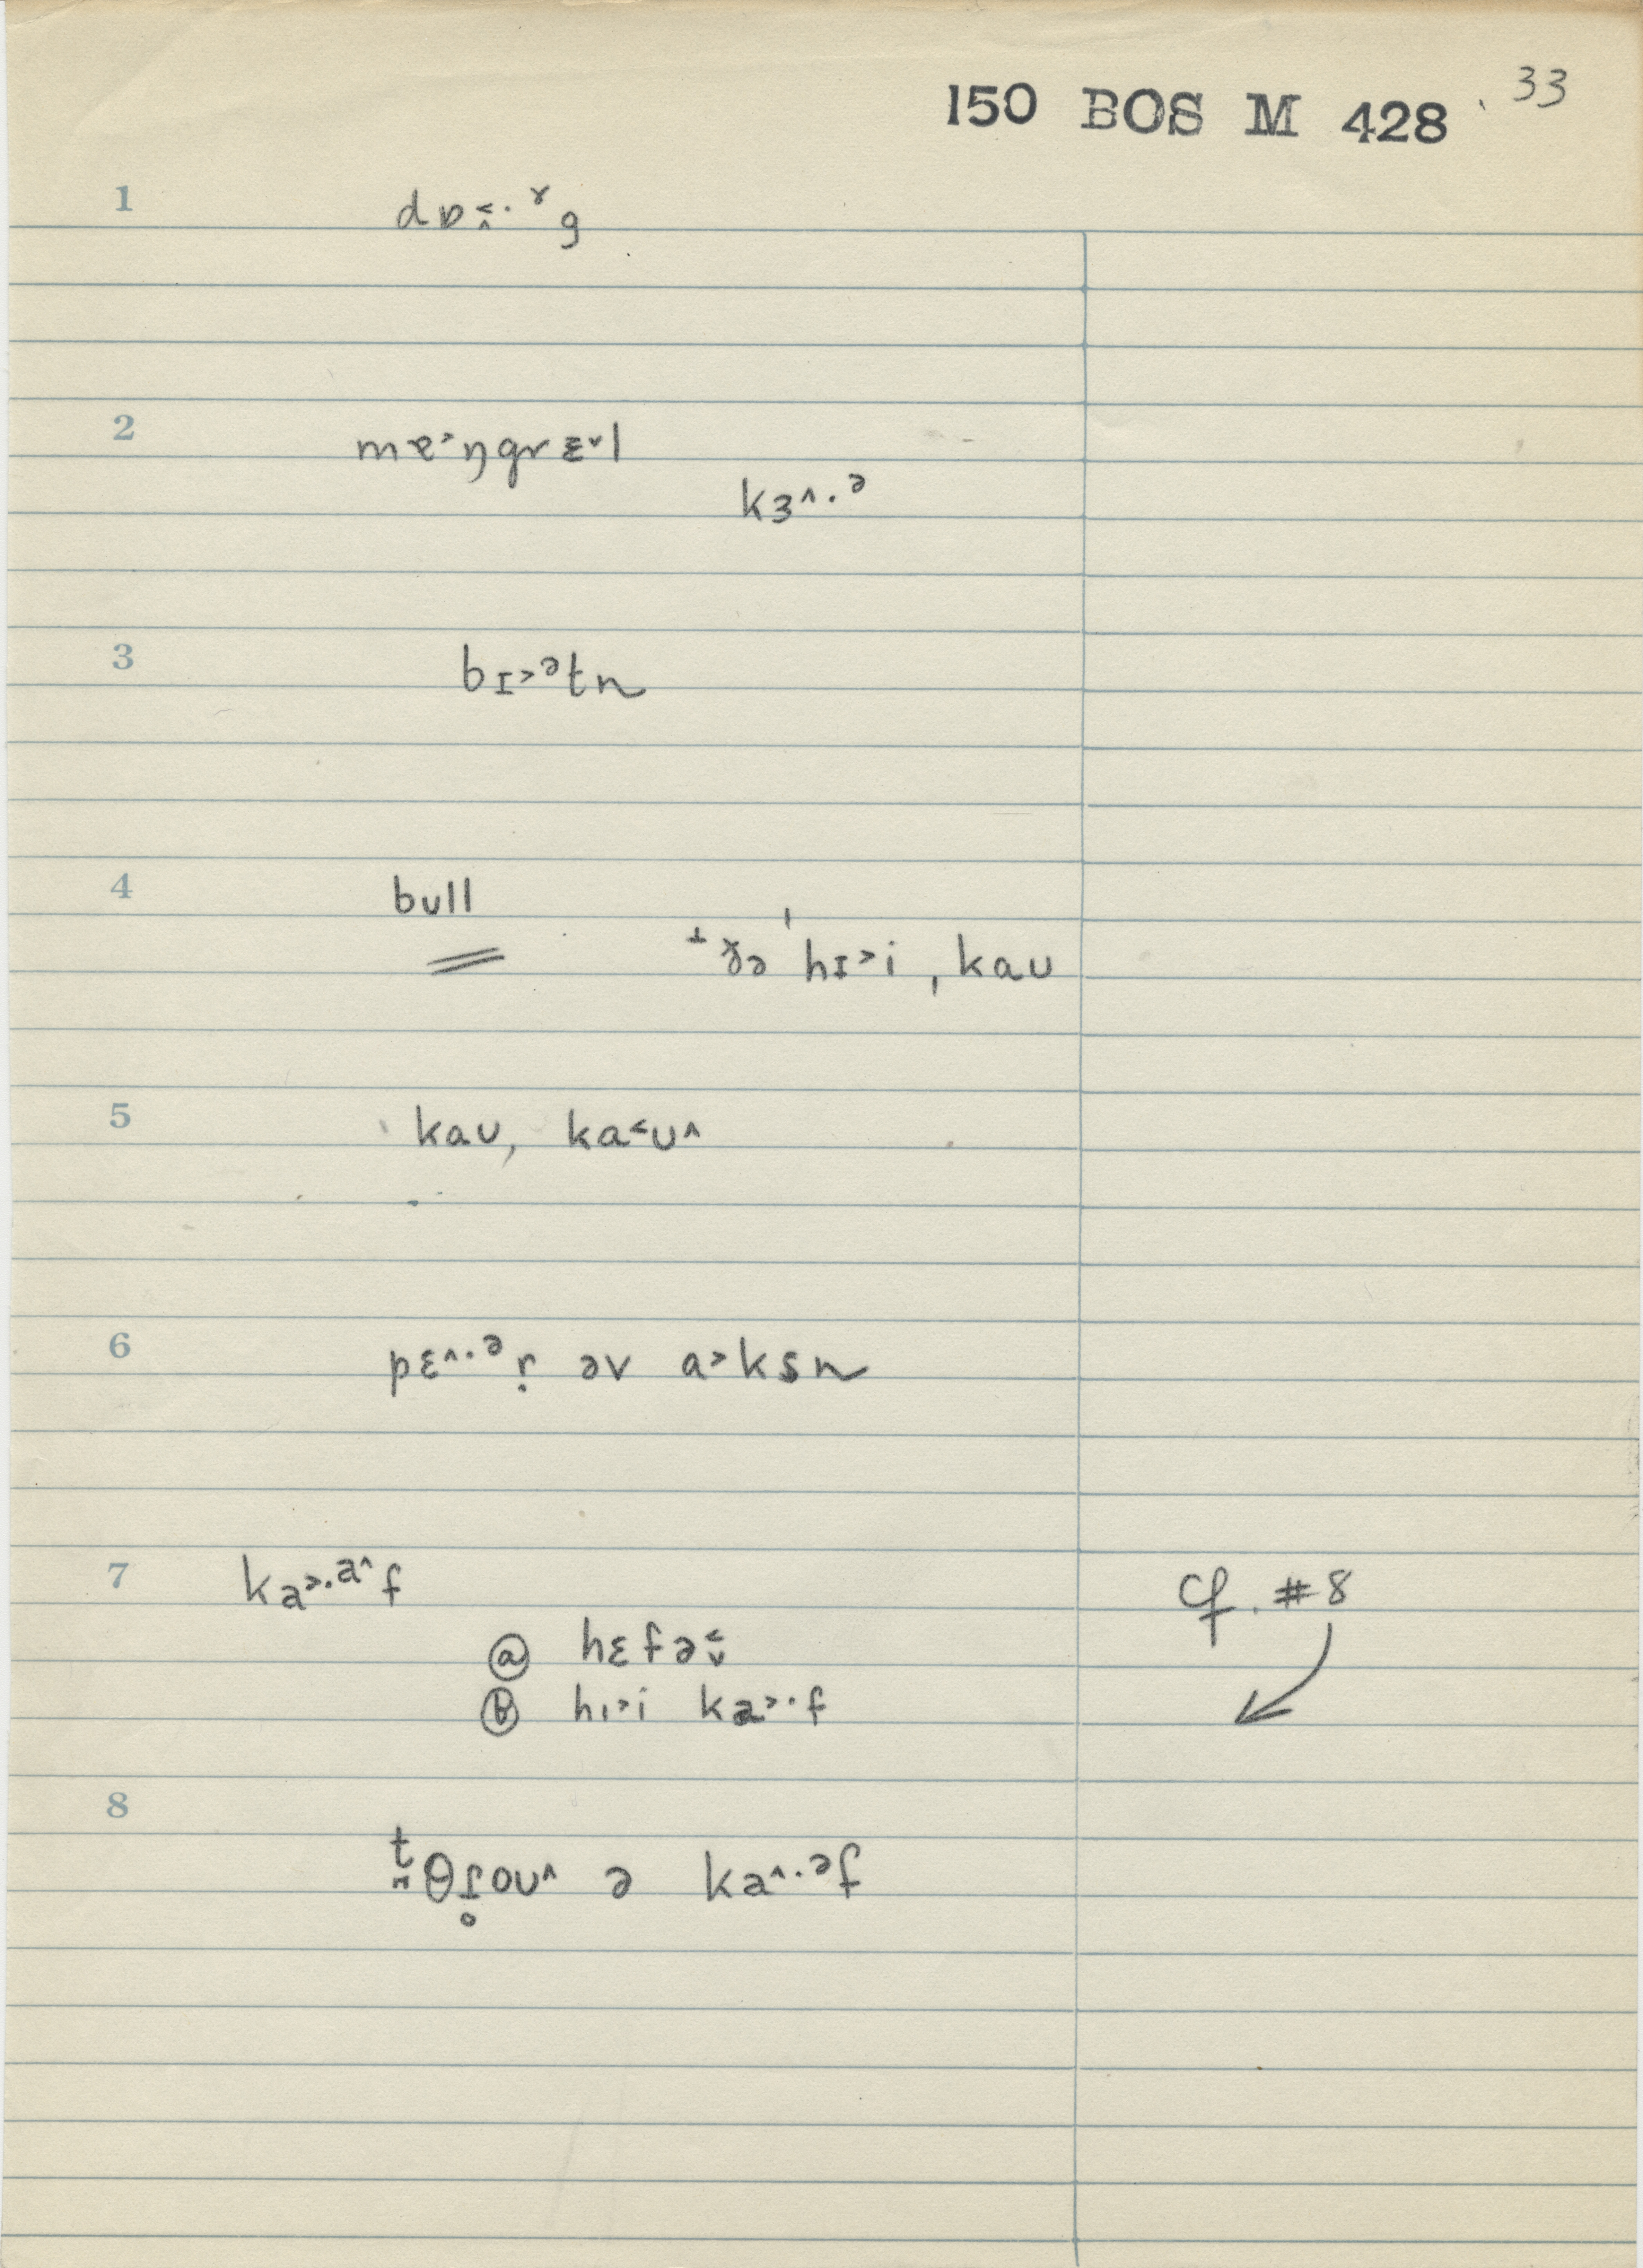 150 BOS M 428 33
1 dɒ˂˄·ˠg
2 mɐ˃ŋgrɛ˅l
kɜ˄·ᵊ
3 bɪ˃ᵊtn
4 bull
ðə ˈhɪ˃i ˌkaʊ
5 kaʊ, ka˂ʊ˄
6 pɛ˄·ᵊṛ əv a˃ksn
7 ka˃·ᵃ˄f cf. #8
ⓐ hɛfə˂˅
ⓑ hɪ˃i ka˃·f
8
t θɾ̥oʊ˄ ə ka˄·ᵊf